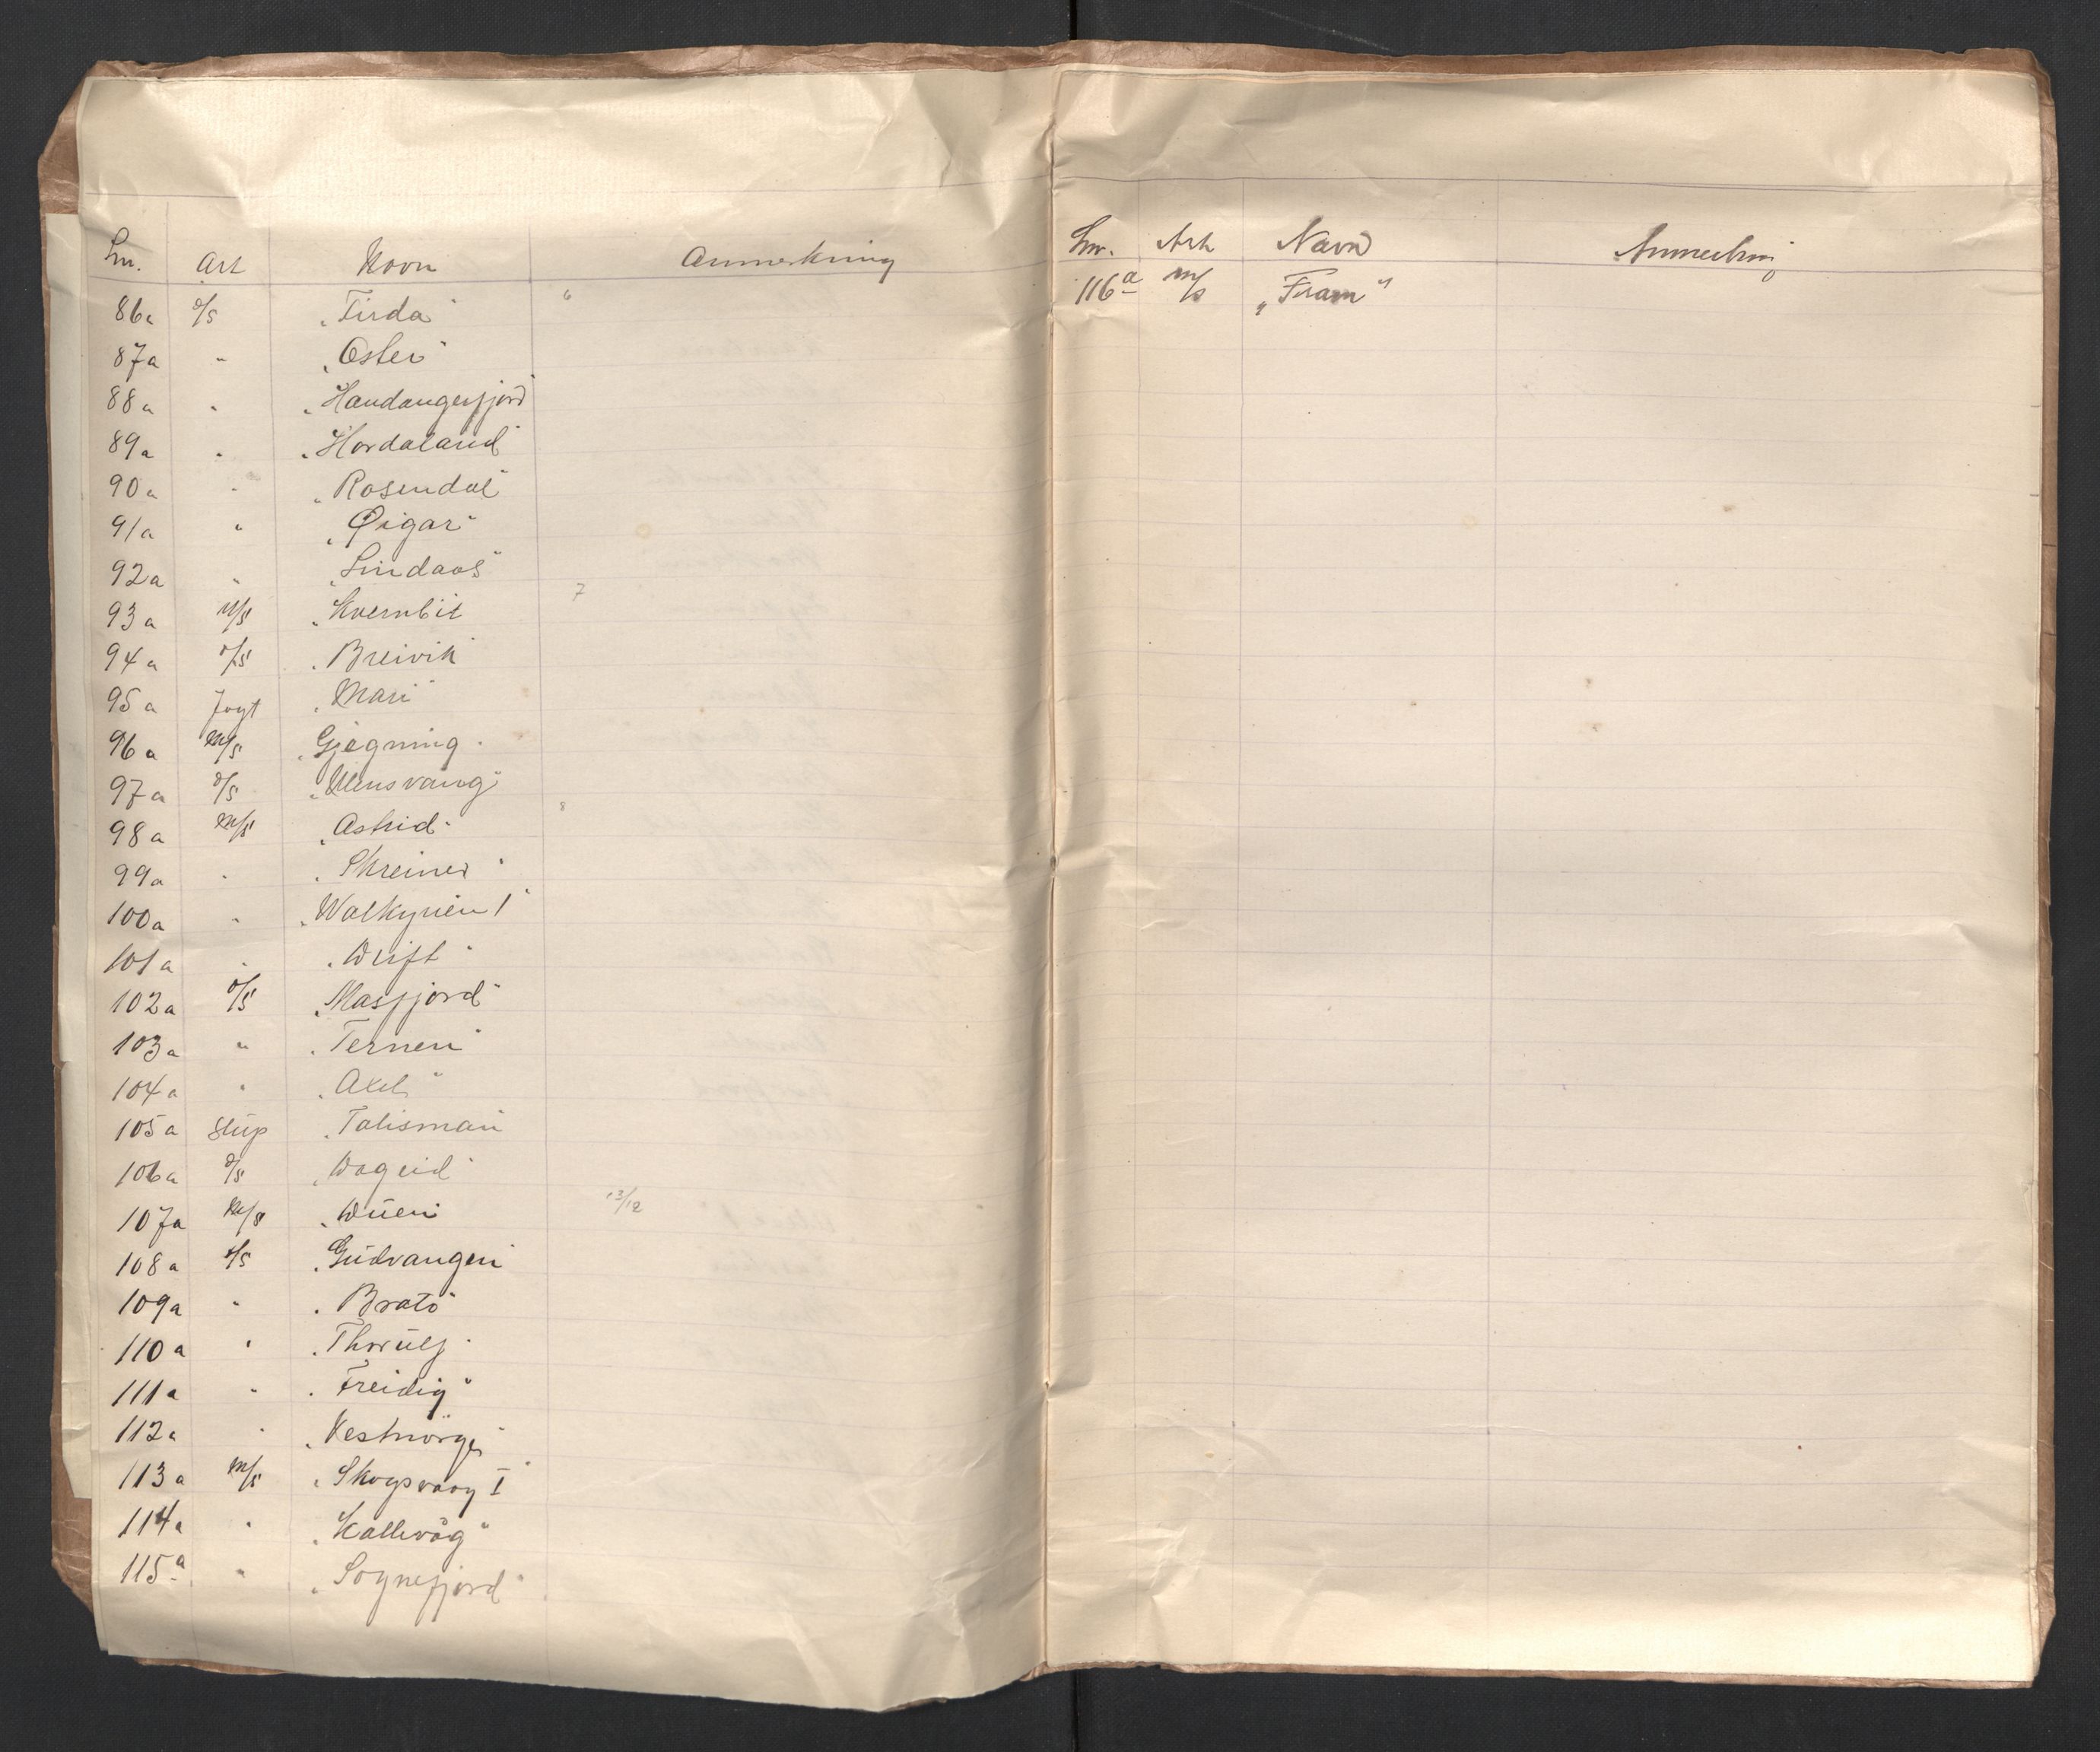 Lnr. Art Navn Anmerkning
86a D/S „Firda" 6
87a " „Oster"
88a " „Hardangerfjord"
89a " „Hordaland"
90a " „Rosendal"
91a " „Øigar"
92a " „Lindaas"
93a M/S „Kvernbit 7
94a D/S „Breivik"
95a Jagt „Mari"
96a M/S „Gjegning"
97a D/S „Ullensvang"
98a M/S „Astrid" 8
99a " „Skreiner"
100a " „Walkyrien 1"
101a " „Drift"
102a D/S „Masfjord"
103a " „Ternen"
104a " „Axel"
105a Slup „Talisman"
106a D/S „Dageid"
107a M/S „Duen" 13/12
108a D/S „Gudvangen"
109a " „Brato"
110a " „Thorulf"
111a " „Freidig"
112a " „Vestnorge"
113a M/S „Skogsvaag I"
114a " „Kallevåg"
115a " „Sognefjord"
Lnr. Art Navn Anmerkning
116a M/S „Fram"